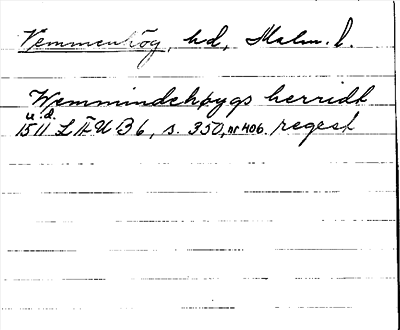 Vemmenhög, hd, Malm. l.
Wemmindehøygs herridt
u.d.
1511 LÆUB 6, s. 350, nr 406. regest